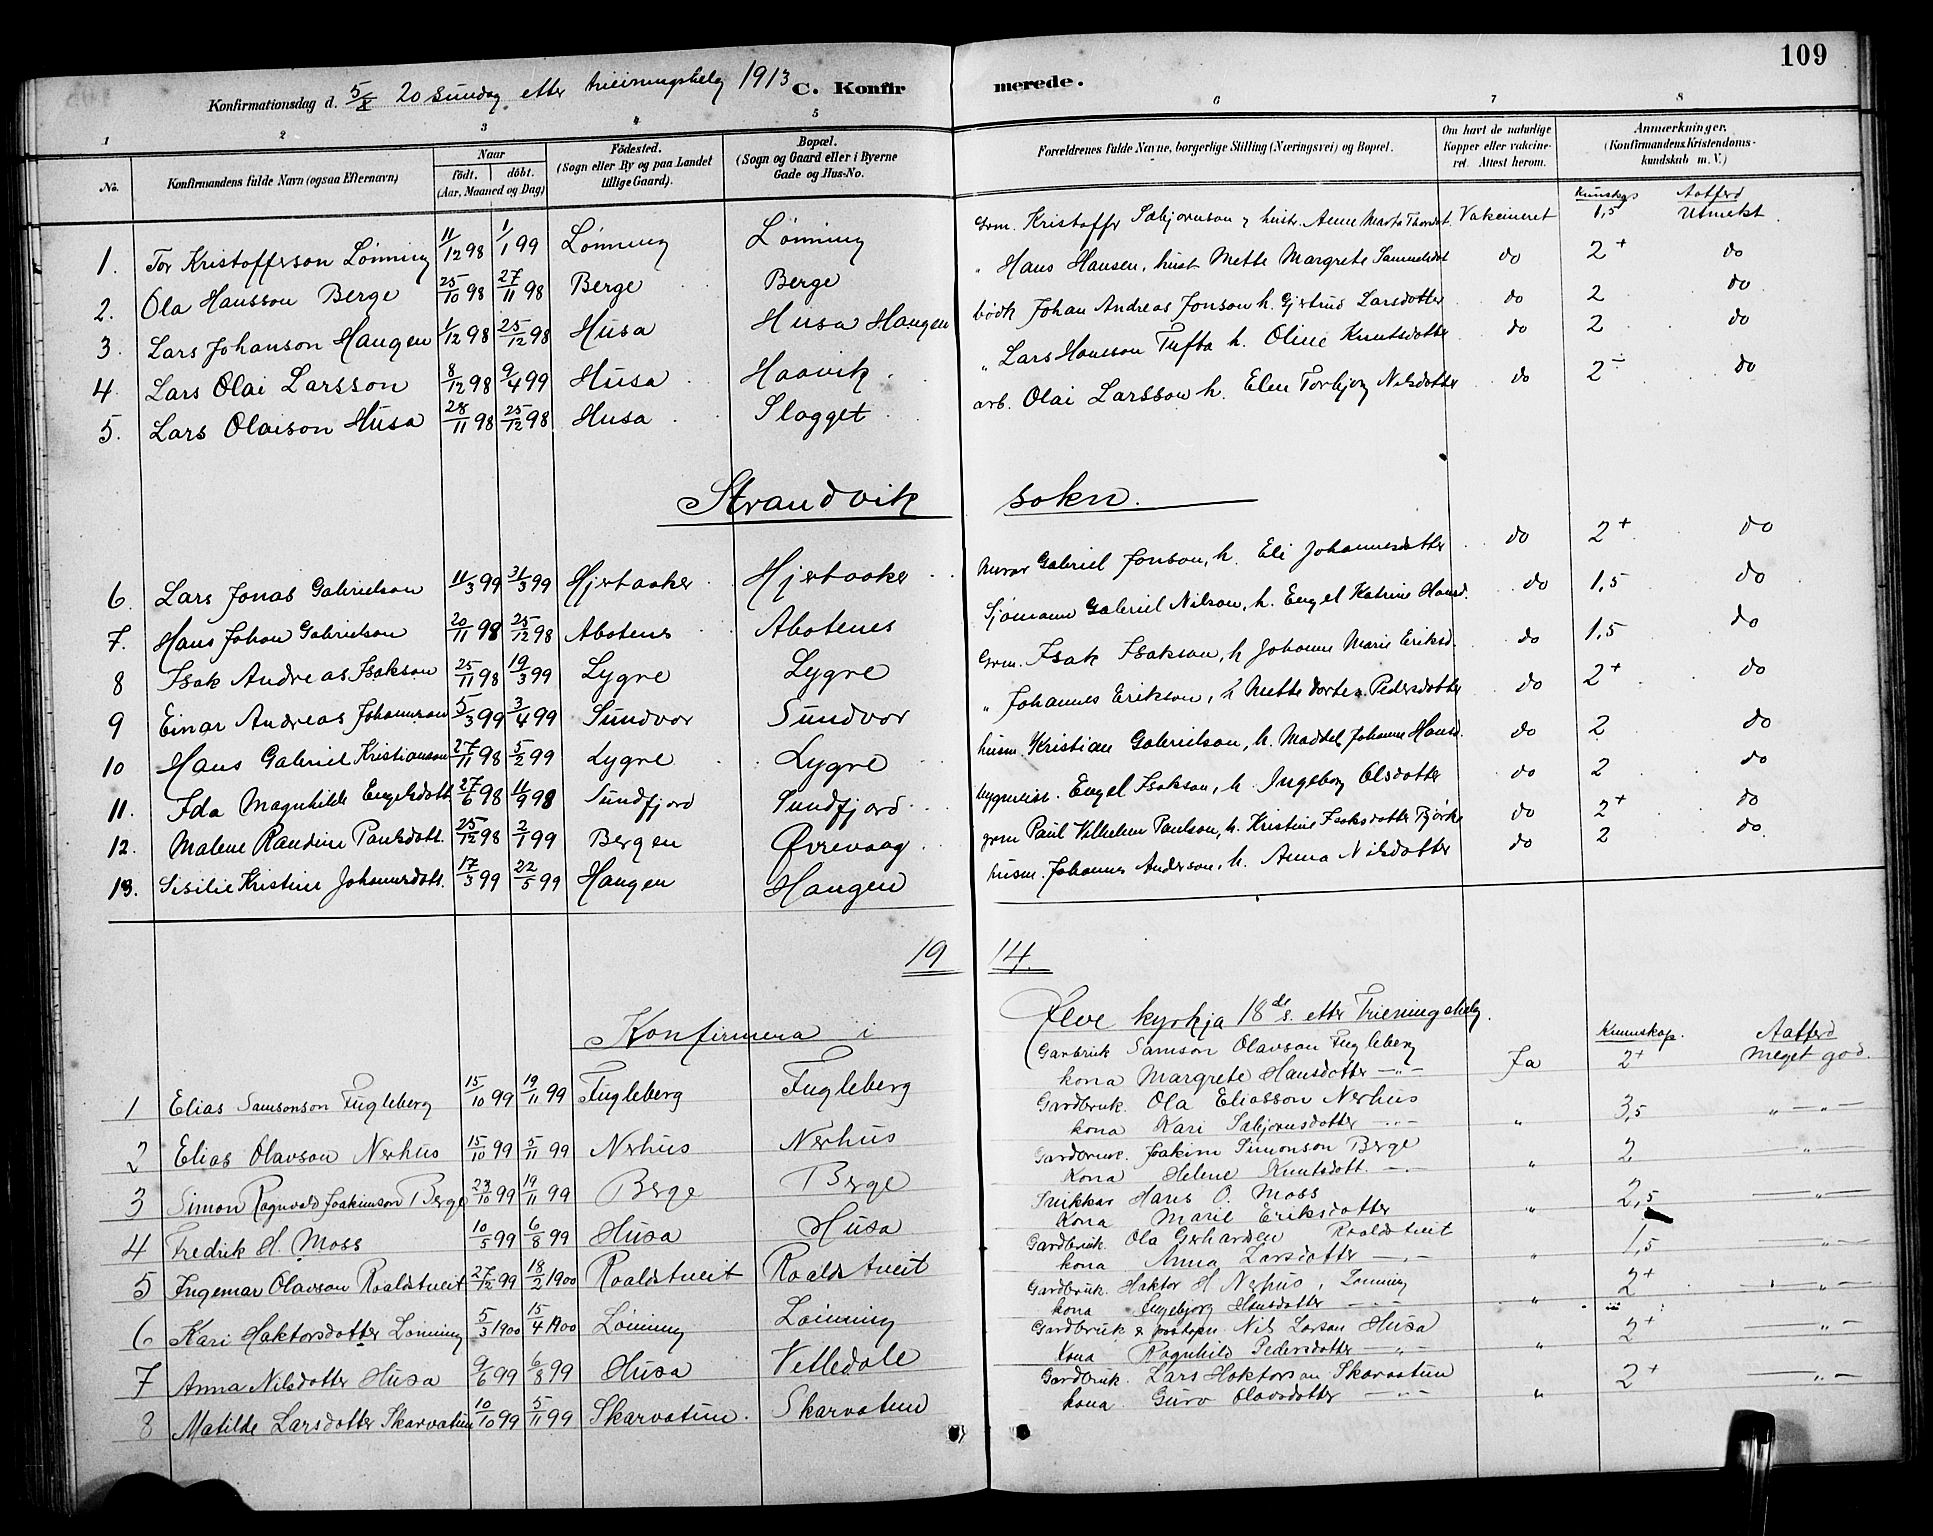 109
Konfirmationsdag d. 5/X 20 sundag etter trieiningshelg 1913 C. Konfirmerede.
1 2 3 4 5 6 7 8
No. Konfirmandens fulde Navn (ogsaa Efternavn) Naar födt. döbt. (Aar, Maaned og Dag) Födested. (Sogn eller By og paa Landet tillige Gaard). Bopæl. (Sogn og Gaard eller i Byerne Gade og Hus-No. Forældrenes fulde Navne, borgerlige Stilling (Næringsvei) og Bopæl. Om havt de naturlige Kopper eller vakcineret. Attest herom. Anmærkninger. (Konfirmandens Kristendomskundskab m. V.)
Kunskap Aatferd
1. Tor Kristofferson Lönning 11/12 98 1/1 99 Lönning Lönning Grm. Kristoffer Sæbjornson & hustr. Anne Marta Thorsdt. Vakcineret 1,5 Utmerkt
2. Ola Hansson Berge 25/10 98 27/11 98 Berge Berge " Hans Hansen, hust Mette Margrete Samuelsdot do 2+ do
3. Lars Johanson Haugen 1/12 98 25/12 98 Husa Husa Haugen bødk Johan Andreas Jonson h. Gjertrud Larsdotter do 2 do
4. Lars Olai Larsson 8/12 98 9/4 99 Husa Haavik " Lars Hansson Tufta h. Oline Knutsdotter do 2 do
5. Lars Olaison Husa 28/11 98 25/12 98 Husa Slagget arb. Olai Larsson h. Elen Torbjorg Nilsdotter do 2÷ do
Strandvik sokn.
6. Lars Jonas Gabrielson 11/3 99 31/3 99 Hjertaaker Hjertaaker Murar Gabriel Jonson, h. Eli Johannesdotter do 2+ do
7. Hans Johan Gabrielson 20/11 98 25/12 98 Abotenes Abotenes Sjømann Gabriel Nilson, h. Engel Katrine Hansd. do 1,5 do
8 Isak Andreas Isakson 25/11 98 19/3 99 Lygre Lygre Grm. Isak Isakson, h Johanne Marie Eriksd. do 1,5 do
9 Einar Andreas Johannson 5/3 99 3/4 99 Sundvor Sundvor " Johannes Erikson, h Mette Dortea Pedersdotter do 2+ do
10 Hans Gabriel Kristianson 27/11 98 5/2 99 Lygre Lygre husm. Kristian Gabrielson, h. Maddel Johanne Hansd. do 2 do
11. Ida Magnhilde Engelsdott 27/6 98 11/9 98 Sundfjord Sundfjord Engel Isakson, h. Ingeborg Olsdotter do 2 do
12. Malene Raudine Paulsdott. 25/12 98 2/1 99 Bergen Øvrevaag grm Paul Vilhelm Paulson, h. Kristine Isaksdotter Bjørke do 2+ do
13. Sisilie Kristine Johannesdott. 17/3 99 22/5 99 Haugen Haugen husm. Johannes Anderson, h. Anna Nilsdotter do 2 do.
1914.
Konfirmera i Ølve kyrkja 18de s. etter Trieiningshelg.
Kunnskap. Aatferd
1 Elias Samsonson Fugleberg 15/10 99 19/11 99 Fugleberg Fugleberg Garbruk Samson Olavson Fugleberg Ja 2+ Meget god.
kona Margrete Hansdotter —"—
2 Elias Olavson Nerhus 15/10 99 5/11 99 Nerhus Nerhus Gardbruk. Ola Eliasson Nerhus " 3,5 "—"—
kona Kari Sæbjornsdotter —"—
3 Simon Ragnvald Joakimson Berge 23/10 99 19/11 99 Berge Berge Gardbruk. Joakim Simonson Berge " 2 —"—
Kona Helene Knutsdott —"—
4 Fredrik H. Moss 10/5 99 6/8 99 Husa Husa Snikkar Hans O. Moss " 2,5 —"—
Kona Marie Eriksdotter
5 Ingemar Olavson Roaldstveit 27/12 99 18/2 1900 Roaldstveit Roaldstveit Gardbruk. Ola Gerhardsen Roaldstveit " 1,5 —"—
kona Anna Larsdotter —"—
6 Kari Haktorsdotter Lönning 5/3 1900 15/4 1900 Lönning Lönning Gardbruk. Haktor H Nerhus, Lönning " 2+ —"—
kona Ingebjorg Hansdotter —"—
7 Anna Nilsdotter Husa 9/6 99 6/8 99 Husa Vetledale Gardbruk & postopn. Nils Larson Husa " 2+ —"—
Kona Ragnhild Pedersdotter —"—
8 Matilde Larsdotter Skarvatun 10/10 99 5/11 99 Skarvatun. Skarvatun Gardbruk. Lars Haktorson Skarvatun " 2+ —"—
kona Guro Olavsdotter —"—